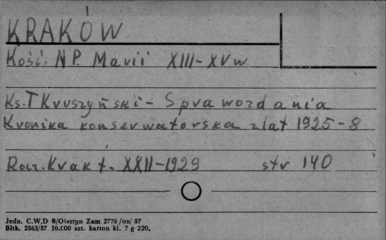 KRAKÓW
Kość. N.P. Marii XIII-XVw
Ks. T Kruszyński - Sprawozdania
Kronika konserwatorska z lat 1925-8
Rocz. Krak t. XXII-1929 str 140
Jedn. C.W.D 8/Olsztyn Zam 2776/on/57
Bltk. 2563/57 10.000 szt. karton kl. 7 g 220,